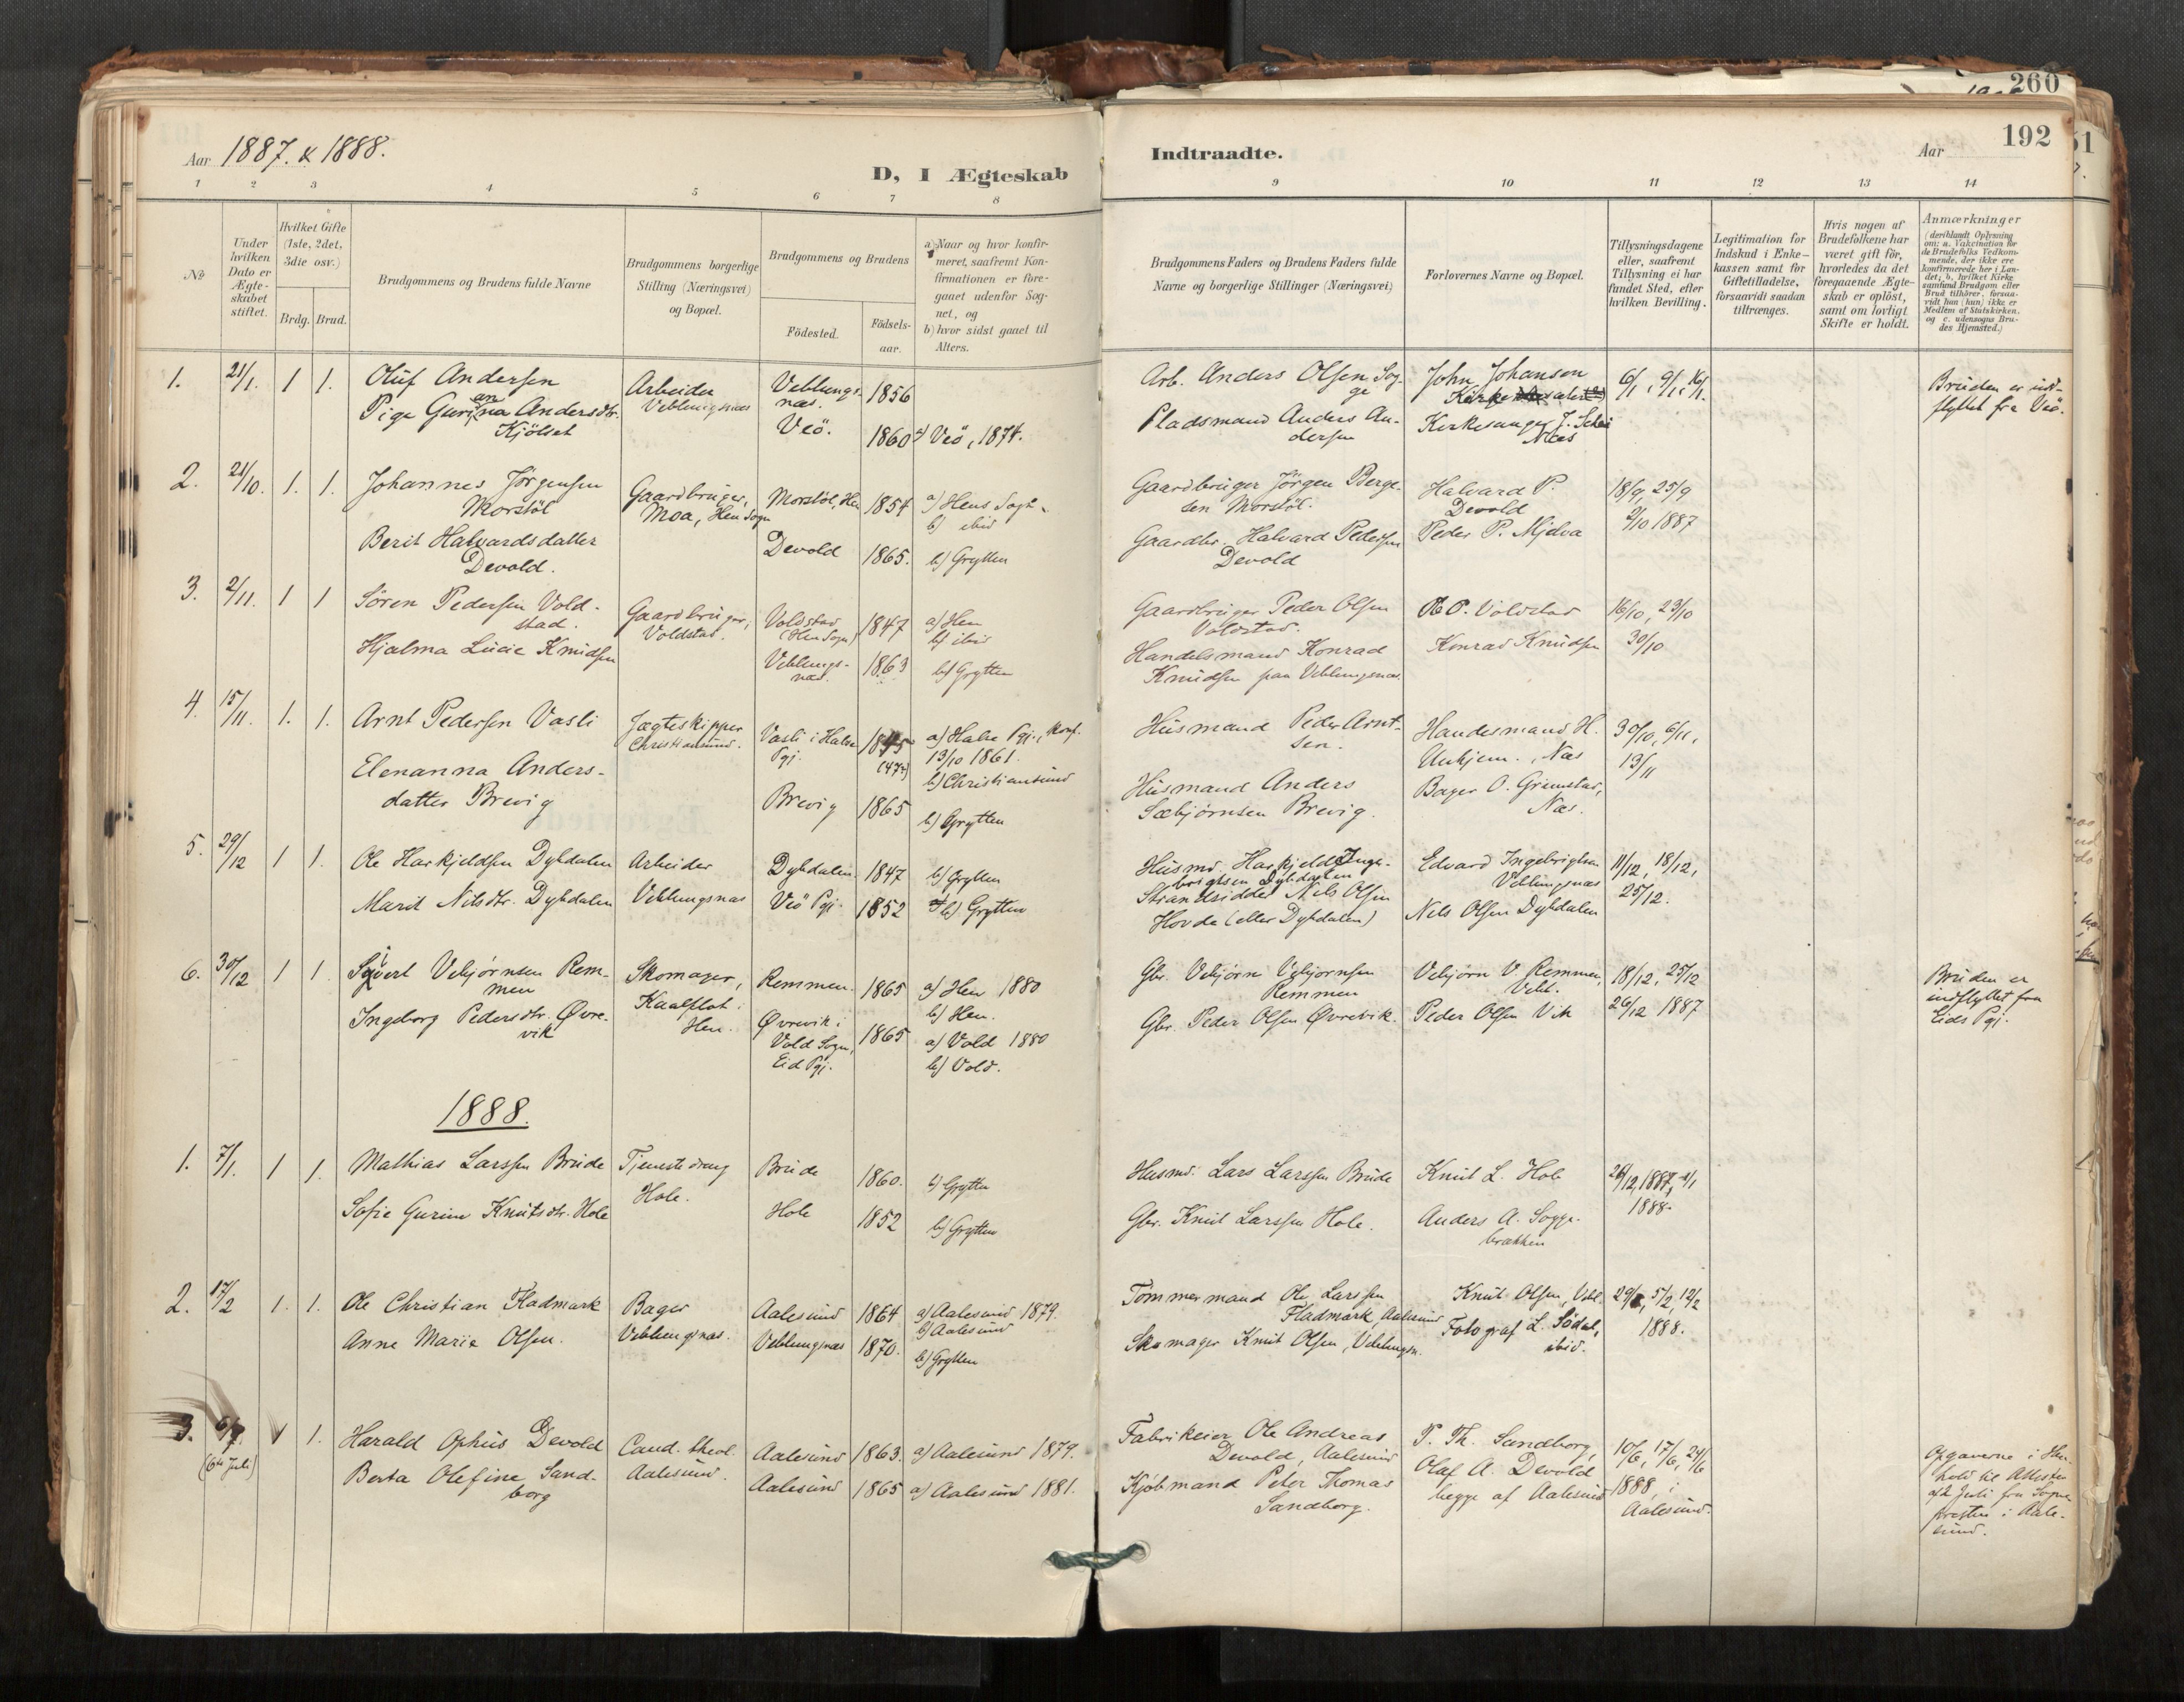 260
Aar 1887. & 1888.
D, I Ægteskab
Indtraadte.
Aar
192
1 2 3 4 5 6 7 8
9 10 11 12 13 14
No
Under hvilken Dato er Ægteskabet stiftet.
Hvilket Gifte (1ste, 2det, 3die osv.)
Brdg. Brud.
Brudgommens og Brudens fulde Navne
Brudgommens borgerlige Stilling (Næringsvei) og Bopæl.
Brudgommens og Brudens
Födested.
Födselsaar.
a) Naar og hvor konfirmeret, saafremt Konfirmationen er foregaaet udenför Sognet, og
b) hvor sidst gaaet til Alters.
Brudgommens Faders og Brudens Faders fulde Navne og borgerlige Stillinger (Næringsvei)
Forlovernes Navne og Bopæl.
Tillysningsdagene eller, saafremt Tillysning ei har fundet Sted, efter hvilken Bevilling.
Legitimation for Indskud i Enkekassen samt for Giftetilladelse, forsaavidt saadan tiltrænges.
Hvis nogen af Brudefolkene har været gift för, hvorledes da det foregaaende Ægteskab er oplöst, samt om lovligt Skifte er holdt.
Anmærkninger (deriblandt Oplysning om: a. Vakcination for de Brudefolks Vedkommende, der ikke ere konfirmerede her i Landet; b. hvilket Kirkesamfund Brudgom eller Brud tilhörer, forsaavidt han (hun) ikke er Medlem af Statskirken, og c. udensogns Brudes Hjemsted.)
1. 21/1. 1 1. Oluf Andersen
Pige Gurianna Andersdtr. Kjölset
Arbeider
Veblungsnæs
Veblungsnæs. 1856
Veö. 1860 a) Veö, 1874.
Arb. Anders Olsen Sogge
Pladsmand Anders Andersen
John Johansen
Kirkesanger J. Schei
Næs
6/1, 9/1, 16/1.
Bruden er indflyttet fra Veö.
2. 21/10. 1. 1. Johannes Jörgensen Morstöl
Berit Halvardsdatter Devold.
Gaardbruger,
Moa, Hen Sogn
Morstöl, Hen 1854 a) Hens Sogn
b) ibid
Devold 1865. b) Grytten
Gaardbruger Jörgen Bergesen Morstöl.
Gaardbr. Halvard Pedersen Devold
Halvard P. Devold
Peder P. Mjelva
18/9, 25/9
2/10 1887
3. 2/11. 1 1 Sören Pedersen Voldstad.
Hjalma Lucie Knudsen
Gaardbruger,
Voldstad.
Voldstad (Hen Sogn) 1847 a) Hen
b) ibid
Veblungsnæs. 1863 b) Grytten
Gaardbruger Peder Olsen Voldstad.
Handelsmand Konrad Knudsen paa Veblungsnæs
P. Voldstad
Konrad Knudsen
16/10, 23/10
30/10
4. 15/11. 1. 1. Arnt Pedersen Vasli
Elenanna Andersdatter Brevig
Jægteskipper
Christiansund.
Vasli i Halse Pgj. 1845
a) Halse Pgj., konf. 13/10 1861.
b) Christiansund
Brevig 1865 b) Grytten
Husmand Peder Arntsen.
Husmand Anders Sæbjørnsen Brevig.
Handesmand H. Unhjem., Næs
Bager O. Grimstad, Næs.
30/10, 6/11,
13/11
5. 29/12 1 1. Ole Harkjeldsen Dybdalen
Marit Nilsdtr. Dybdalen
Arbeider
Veblungsnæs
Dybdalen. 1847 b) Grytten
Veö Pgj. 1852 b) Grytten
Husmd. Harkjeld Ingebrigtsen Dybdalen
Strandsidder Nils Olsen Hovde (eller Dybdalen)
Edvard Ingebrigtsen Veblungsnæs
Nels Olsen Dybdalen
11/12, 18/12,
25/12.
6. 30/12 1 1 Sivert Vebjørnsen Remmen
Ingeborg Pedersdtr. Øvrevik
Skomager,
Kaalflot. Hen.
Remmen. 1865 a) Hen 1880
b) Hen.
Øvrevik i Vold Sogn, Eid Pgj. 1865 a) Vold 1880
b) Vold.
Gbr. Vebjørn Vebjornsen Remmen
Gbr. Peder Olsen Øvrevik.
Vebjørn V. Remmen, Vebl.
Peder Olsen Vik
18/12, 25/12
26/12 1887
Bruden er indflyttet fra Eids Pgj.
1888.
1. 7/1. 1 1. Mathias Larssen Brude
Sofie Gurine Knutsdtr. Hole
Tjenestedreng
Hole.
Brude 1860. b) Grytten
Hole 1852 b) Grytten
Husmd. Lars Larssen Brude
Gbr. Knut Larssen Hole.
Knut L. Hole
Anders A. Soggebrækken
26/12, 1887, 1/1
1888.
2. 17/2 1. 1. Ole Christian Fladmark
Anne Marie Olsen.
Bager
Veblungsnæs.
Aalesund 1864 a) Aalesund 1879.
b) Aalesund
Veblungsnæs 1870. b) Grytten
Tömmermand Ole Larssen Fladmark, Aalesund
Skomager Knut Olsen, Veblungsn.
Knut Olsen, Vebl.
Fotograf L. Södal, ibid.
29/1, 5/2, 12/2
1888.
3. 6/7. (6te Juli) 1 1. Harald Ophus Devold
Berta Olefine Sandborg
Cand. theol.
Aalesund.
Aalesund 1863. a) Aalesund 1879.
Aalesund 1865 a) Aalesund 1881.
Fabrikeier Ole Andreas Devold, Aalesund
Kjöbmand Peter Thomas Sandborg.
P. Th. Sandborg,
Olaf A. Devold
begge af Aalesund
10/6, 17/6, 24/6
1888 i Aalesund.
Opgaverne i Henhold til Attester af 2 Juli fra Sognepresten i Aalesund.